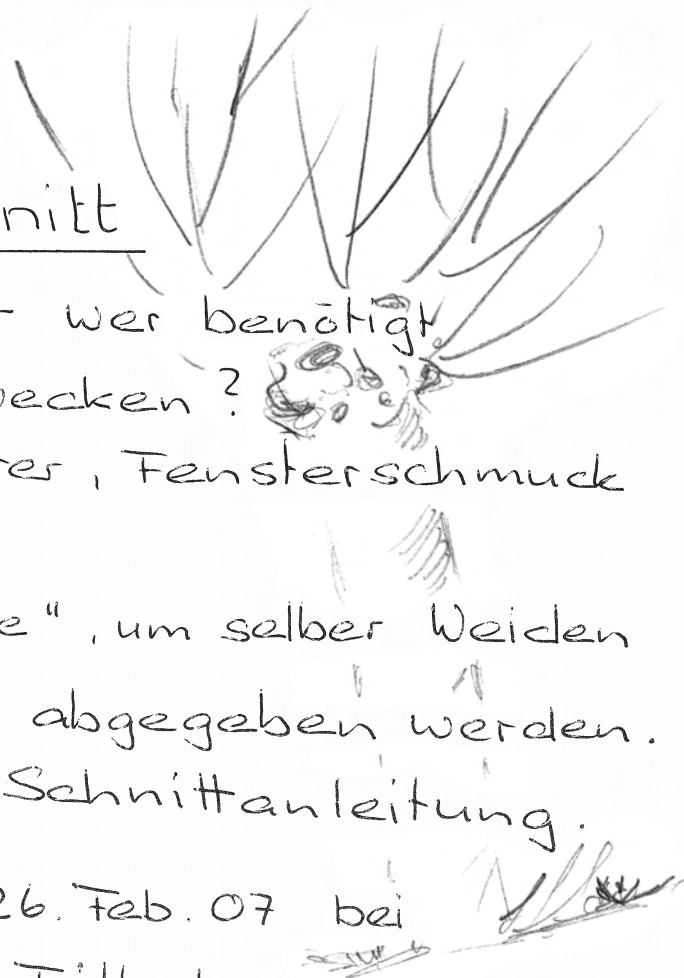 nitt
- wer benötigt
ecken ?
er, Fensterschmuck
e", um selber Weiden
abgegeben werden.
Schnittanleitung.
26. Feb. 07 bei